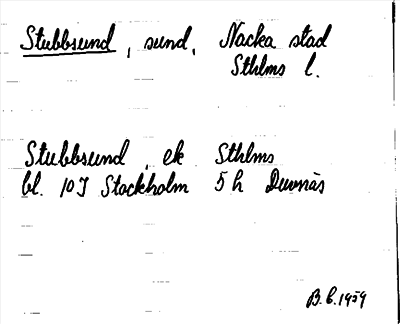 Stubbsund, sund, Nacka stad
Sthlms l.
Stubbsund, ek Sthlms
bl. 10J Stockholm 5h Duvnäs
B.C. 1959